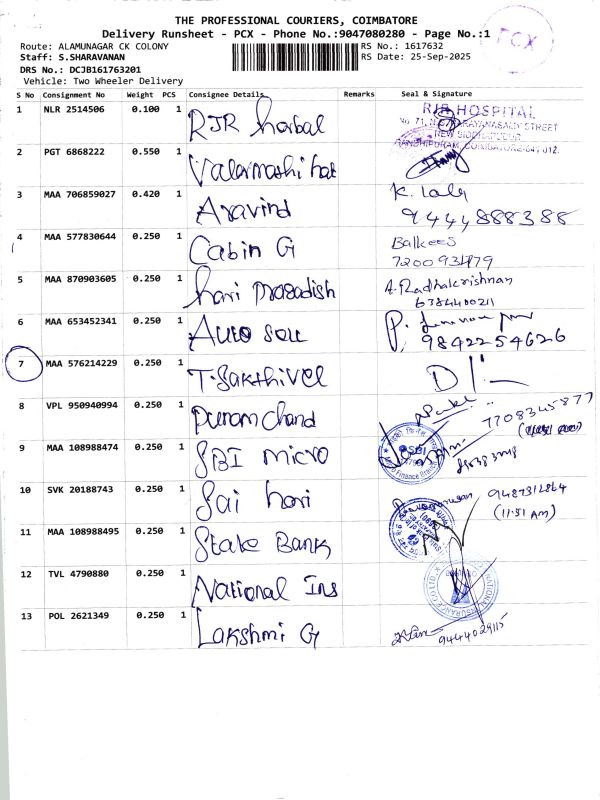 THE PROFESSIONAL COURIERS, COIMBATORE
Delivery Runsheet - PCX - Phone No.:9047080280 - Page No.:1
PCX
Route: ALAMUNAGAR CK COLONY
RS No.: 1617632
Staff: S.SHARAVANAN
RS Date: 25-Sep-2025
DRS No.: DCJB161763201
Vehicle: Two Wheeler Delivery
S No Consignment No Weight PCS Consignee Details Remarks Seal & Signature
1 NLR 2514506 0.100 1 RJR herbal
RJR HOSPITAL
2 PGT 6868222 0.550 1 Valarmathi hat
3 MAA 706859027 0.420 1 Aravind K. Lala
9444888388
4 MAA 577830644 0.250 1 Cabin G Balkees
5 MAA 870903605 0.250 1 hari Prasadish A.Radhakrishnan
6384400211
6 MAA 653452341 0.250 1 Auto
9842254626
7 MAA 576214229 0.250 1 T.Sakthivel
8 VPL 950940994 0.250 1 Puram chand
7708345877
9 MAA 108988474 0.250 1 SBI micro
SBI
10 SVK 20188743 0.250 1 Sai hari
9487312864
(11:51 AM)
11 MAA 108988495 0.250 1 State Bank
12 TVL 4790880 0.250 1 National Ins
13 POL 2621349 0.250 1 Lakshmi G
9444029115